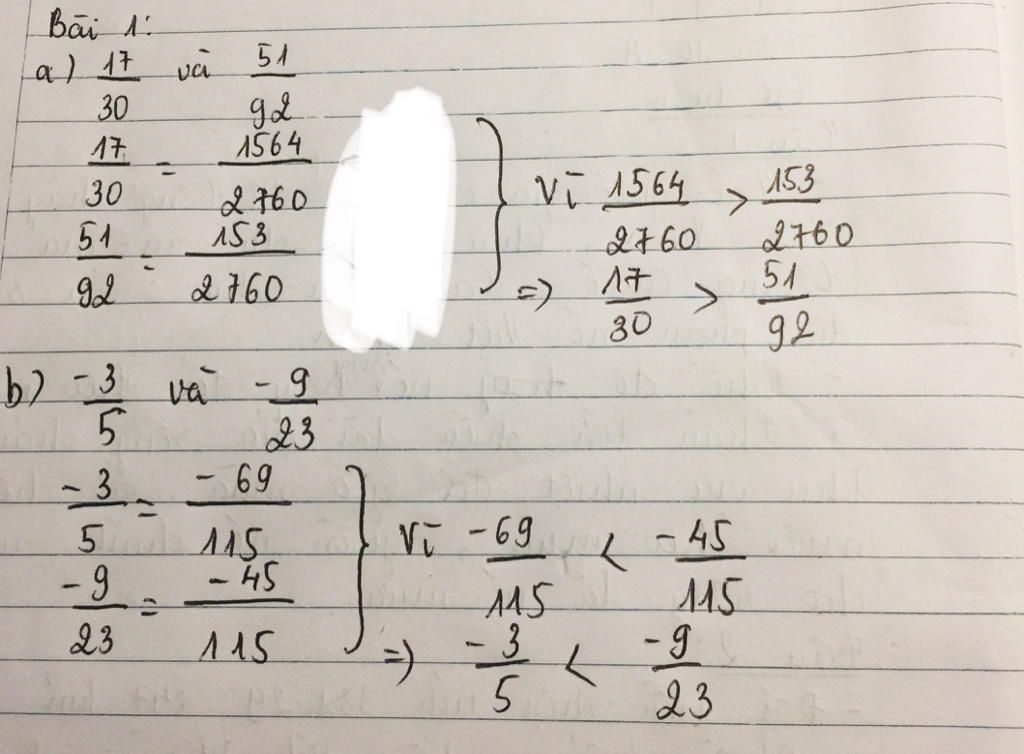 Bài 1:
a) 17/30 và 51/92
17/30 = 1564/2760
51/92 = 153/2760
Vì 1564/2760 > 153/2760
=> 17/30 > 51/92
b) -3/5 và -9/23
-3/5 = -69/115
-9/23 = -45/115
Vì -69/115 < -45/115
=> -3/5 < -9/23